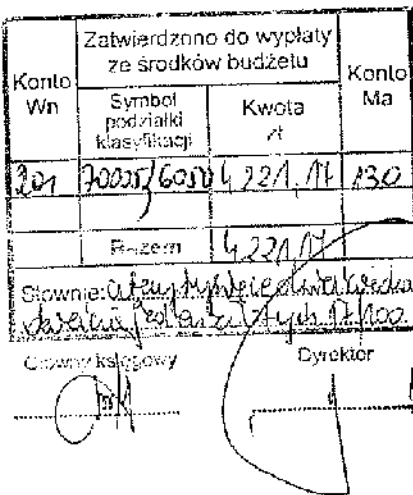 Zatwierdzono do wypłaty
ze środków budżetu
Konto
Wn
Symbol
podziałki
klasyfikacji
Kwota
zł
Konto
Ma
201 70005/6050 4 221,17 130
Razem 4 221,17
Słownie: cztery tysiące dwieście
dwadzieścia jeden złotych 17/100.
Główny księgowy Dyrektor